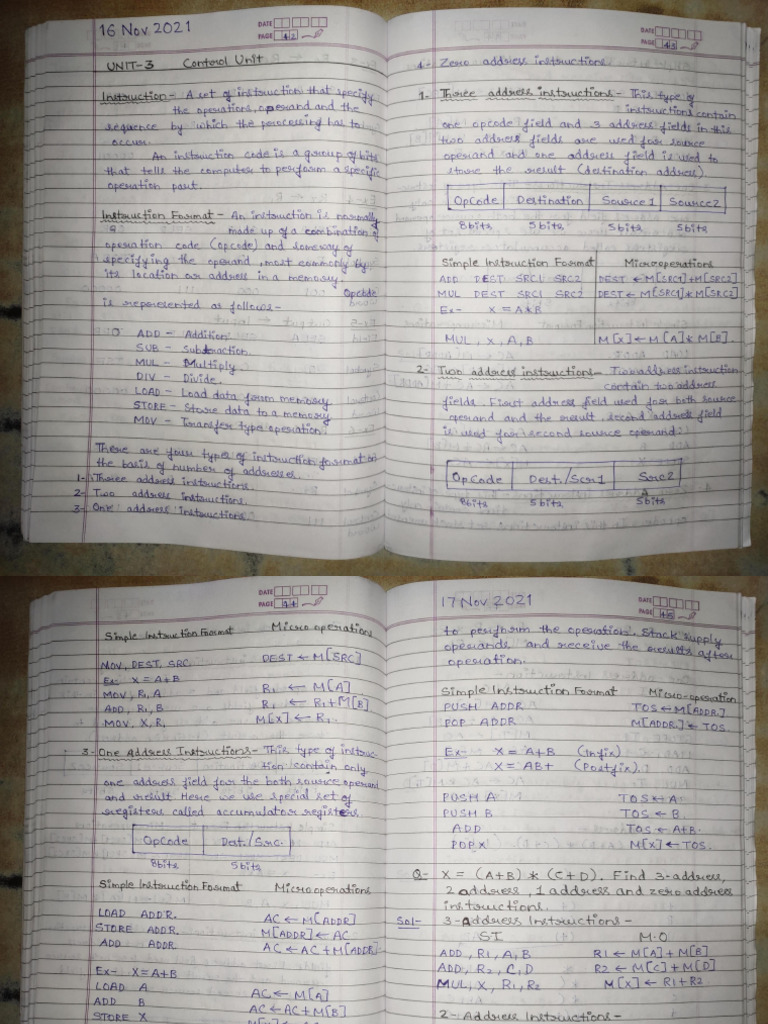 16 Nov 2021
DATE
PAGE 42
UNIT-3 Control Unit
Instruction - A set of instruction that specify
the operations, operand and the
sequence by which the processing has to
occur.
An instruction code is a group of bits
that tells the computer to perform a specific
operation part.
Instruction Format - An instruction is normally
made up of a combination of
operation code (opcode) and someway of
specifying the operand, most commonly by
its location or address in a memory.
Opcode
is represented as follows -
ADD - Addition
SUB - Subtraction
MUL - Multiply
DIV - Divide.
LOAD - Load data form memory
STORE - Store data to a memory
MOV - Transfer type operation.
There are four types of instruction format on
the basis of number of addresses.
1- Three address instructions.
2- Two address instructions.
3- One address instructions.
DATE
PAGE 43
4- Zero address instructions.
1- Three address instructions - This type of
instructions contain
one opcode field and 3 address fields in this
two address fields are used for source
operand and one address field is used to
store the result (destination address)
OpCode Destination Source 1 Source2
8bits 5bits 5bits 5bits
Simple Instruction Format Microoperations
ADD DEST SRC1 SRC2 DEST ← M[SRC1]+M[SRC2]
MUL DEST SRC1 SRC2 DEST ← M[SRC1]*M[SRC2]
Ex- X = A*B
MUL, X, A, B M[X] ← M[A]* M[B].
2- Two address instructions - Two address instruction
contain two address
fields. First address field used for both source
operand and the result, second address field
is used for second source operand.
OpCode Dest./Scr1 Src2
8bits 5bits 5bits
DATE
PAGE 44
Simple Instruction Format Micro operations
MOV, DEST, SRC DEST ← M[SRC]
Ex- X = A+B
MOV, R, A R1 ← M[A]
ADD, R1, B R1 ← R1+M[B]
MOV, X, R1 M[X] ← R1.
3- One Address Instructions - This type of instruc-
tion contain only
one address field for the both source operand
and result. Here we use special set of
registers called accumulator registers
OpCode Dest./Src.
8bits 5bits
Simple Instruction Format Microoperations
LOAD ADDR. AC ← M[ADDR]
STORE ADDR. M[ADDR] ← AC
ADD ADDR AC ← AC+M[ADDR]
Ex- X=A+B
LOAD A AC ← M[A]
ADD B AC ← AC+M[B]
STORE X
17 Nov 2021
DATE
PAGE 45
to perform the operation. Stack supply
operands and receive the results after
operation.
Simple Instruction Format Micro-operation
PUSH ADDR TOS ← M[ADDR.]
POP ADDR M[ADDR.] ← TOS.
Ex- X = A+B (Infix)
X = AB+ (Postfix).
PUSH A TOS ← A
PUSH B TOS ← B.
ADD TOS ← A+B.
POP X M[X] ← TOS.
Q- X = (A+B) * (C+D). Find 3-address,
2 address, 1 address and zero address
instructions.
Sol- 3-Address Instructions -
SI M.O
ADD, R1, A, B R1 ← M[A] + M[B]
ADD, R2, C, D R2 ← M[C] + M[D]
MUL, X, R1, R2 M[X] ← R1+R2
2- Address Instructions -